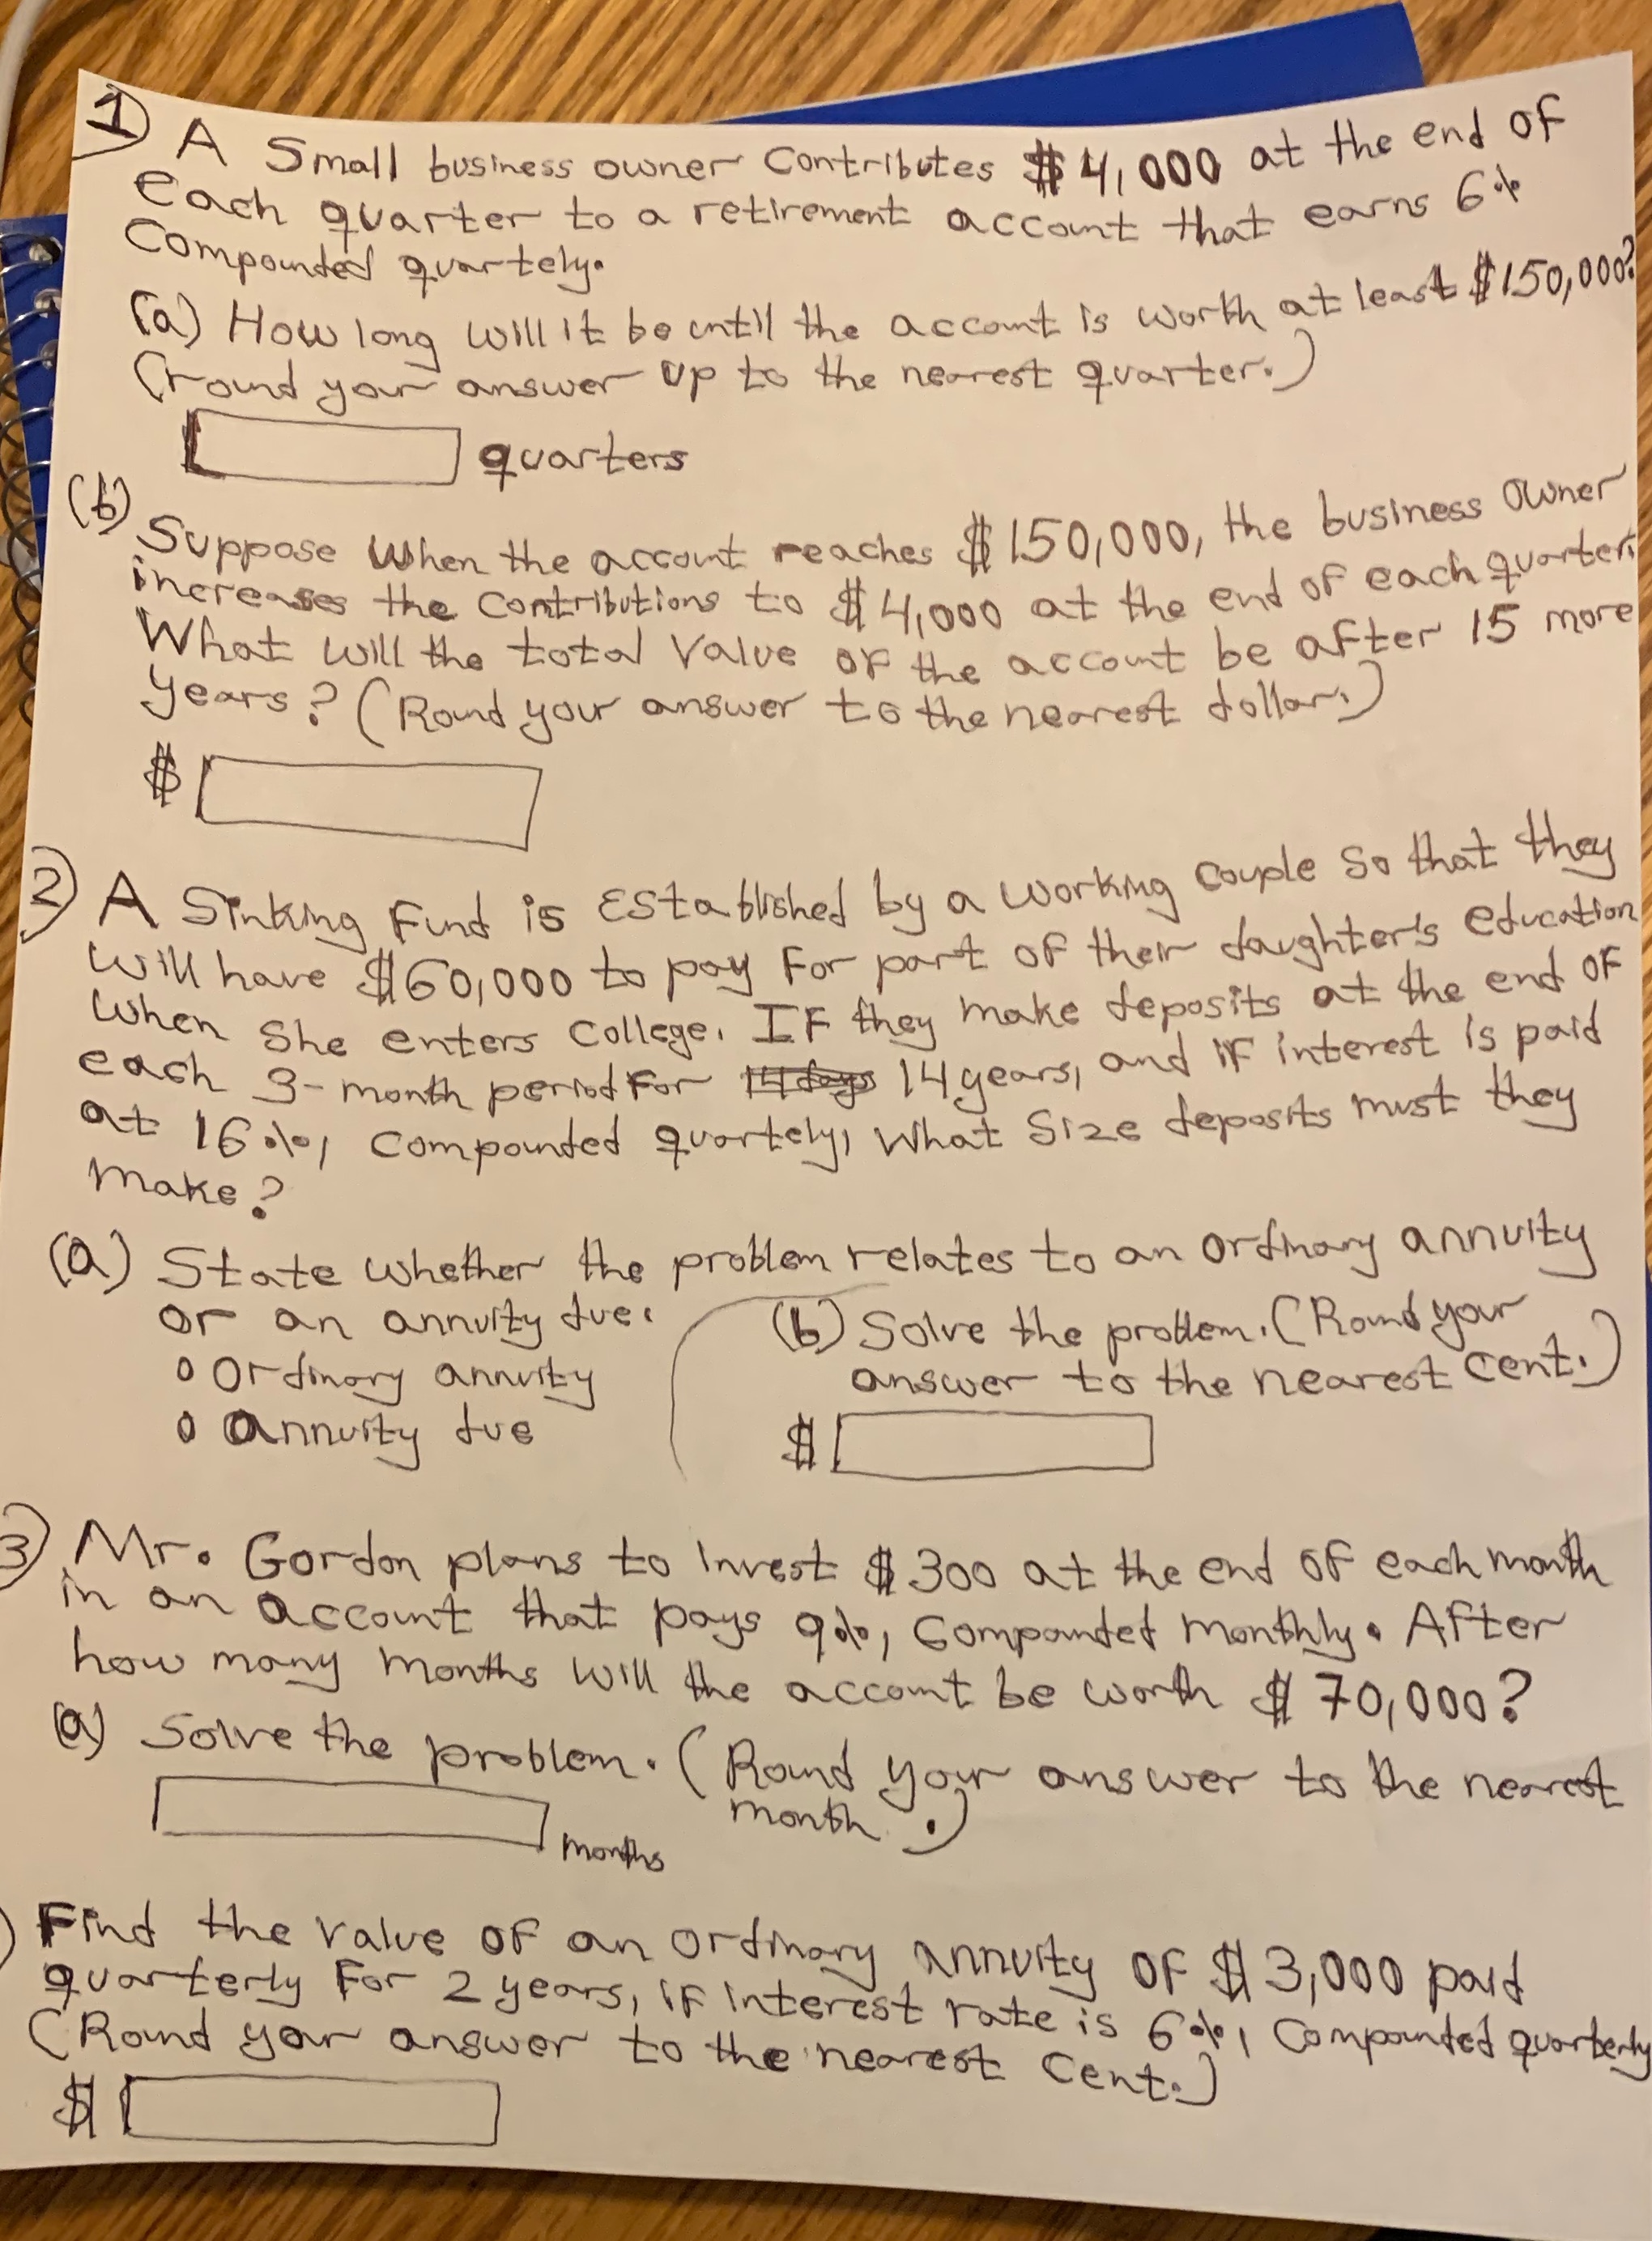 1) A Small business owner Contributes $4,000 at the end of
each quarter to a retirement account that earns 6%
Compounded quartely.
(a) How long will it be until the account is worth at least $150,000?
(round your answer up to the nearest quarter.)
quarters
(b)
Suppose when the account reaches $150,000, the business owner
increases the contributions to $4,000 at the end of each quarter.
What will the total value of the account be after 15 more
years? (Round your answer to the nearest dollar.)
$
2) A Sinking Fund is Established by a working couple so that they
will have $60,000 to pay for part of their daughter's education
when she enters college. If they make deposits at the end of
each 3-month period for 14 days 14 years, and if interest is paid
at 16%, compounded quartely, what size deposits must they
make?
(a) State whether the problem relates to an ordinary annuity
or an annuity due.
o Ordinary annuity
o Annuity due
(b) Solve the problem. (Round your
answer to the nearest cent.)
$
3) Mr. Gordon plans to invest $300 at the end of each month
in an account that pays 9%, compounded monthly. After
how many months will the account be worth $70,000?
(a) Solve the problem. (Round your answer to the nearest
month.)
months
) Find the value of an ordinary annuity of $3,000 paid
quarterly for 2 years, if interest rate is 6%, compounded quarterly
(Round your answer to the nearest cent.)
$